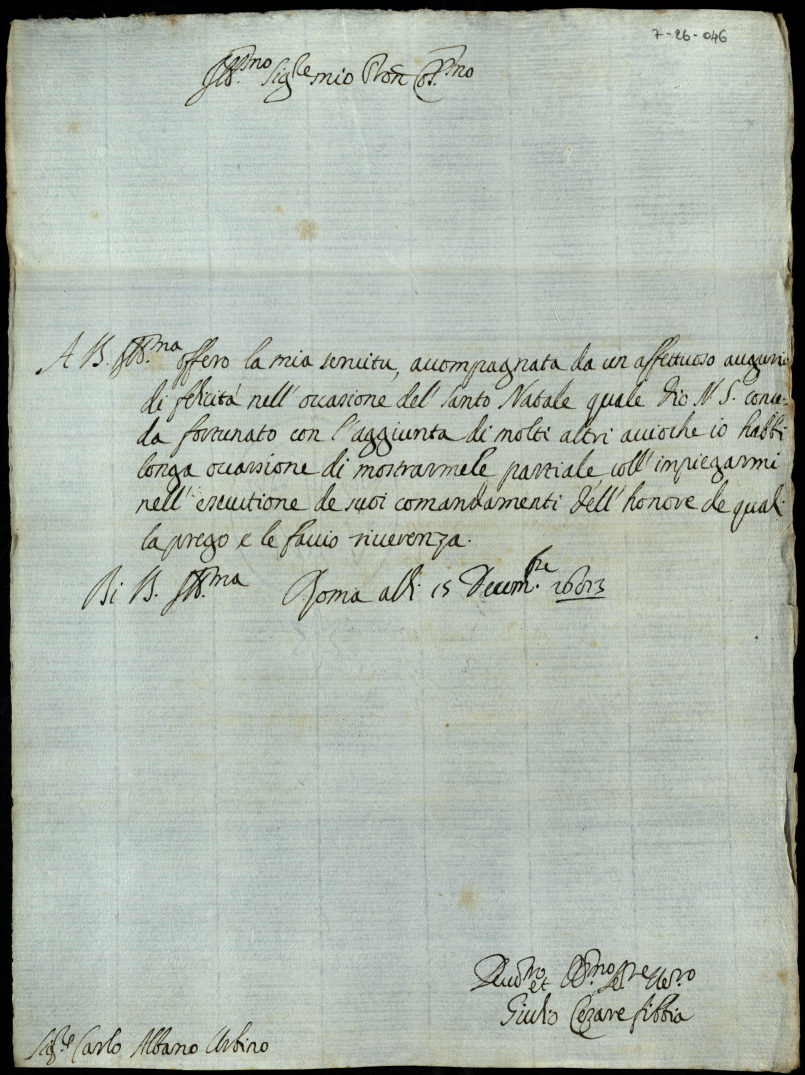 7-26-046
Ill.mo Sig.re mio Pron Coll.mo
A V. Ill.ma offero la mia servitu, accompagnata da un affettuoso augurio
di felicità nell' occasione del' Santo Natale quale Dio N. S. conce-
da fortunato con l'aggiunta di molti altri accioche io habbi
longa occassione di mostrarmele partiale coll' impiegarmi
nell' essecutione de suoi comandamenti dell' honore de quali
la prego e le faccio riverenza.
Di V. Ill.ma Roma alli 15 Decem.bre
Devot.mo et Obb.mo Ser.re Vero
Giulio Cezare fibbia
Sig.re Carlo Albano Urbino